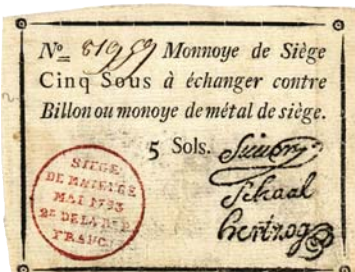 No= 81959 Monnoye de Siège
Cinq Sous à échanger contre
Billon ou monoye de métal de siège.
5 Sols.
SIEGE
DE MAIENCE
MAI 1793
2e DE LA R. F.
FRANÇ.
Schaal
hertzog